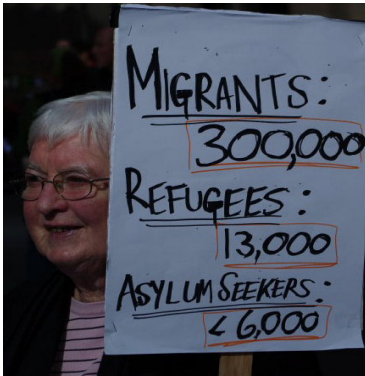 MIGRANTS:
300,000
REFUGEES:
13,000
ASYLUM SEEKERS:
< 6,000